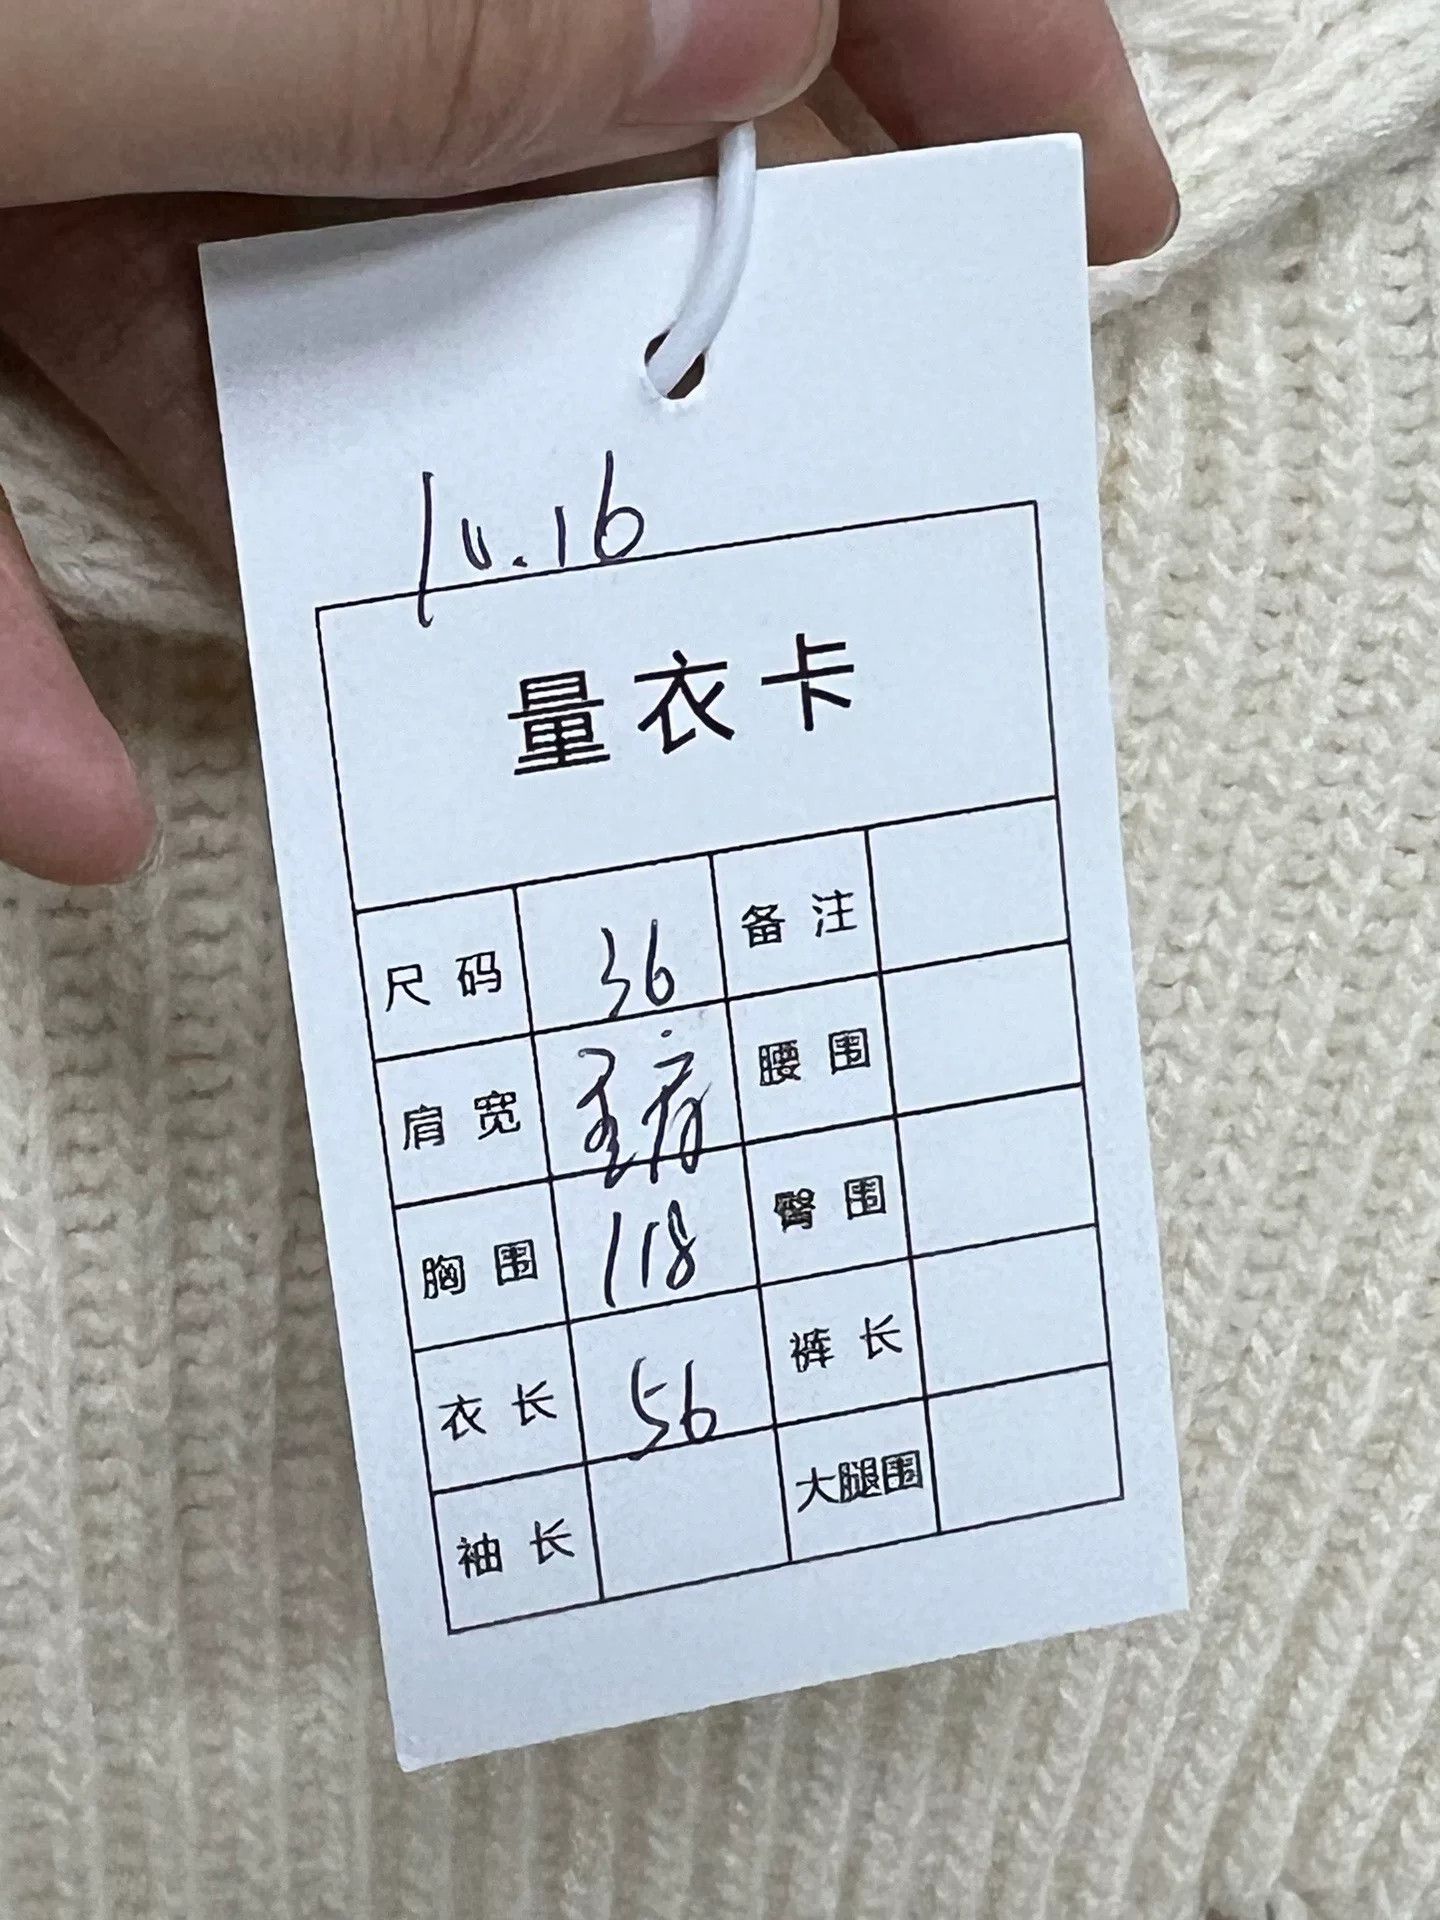 10.16
量衣卡
尺码 36 备注
肩宽 全肩 腰围
胸围 118 臀围
衣长 56 裤长
袖长 大腿围